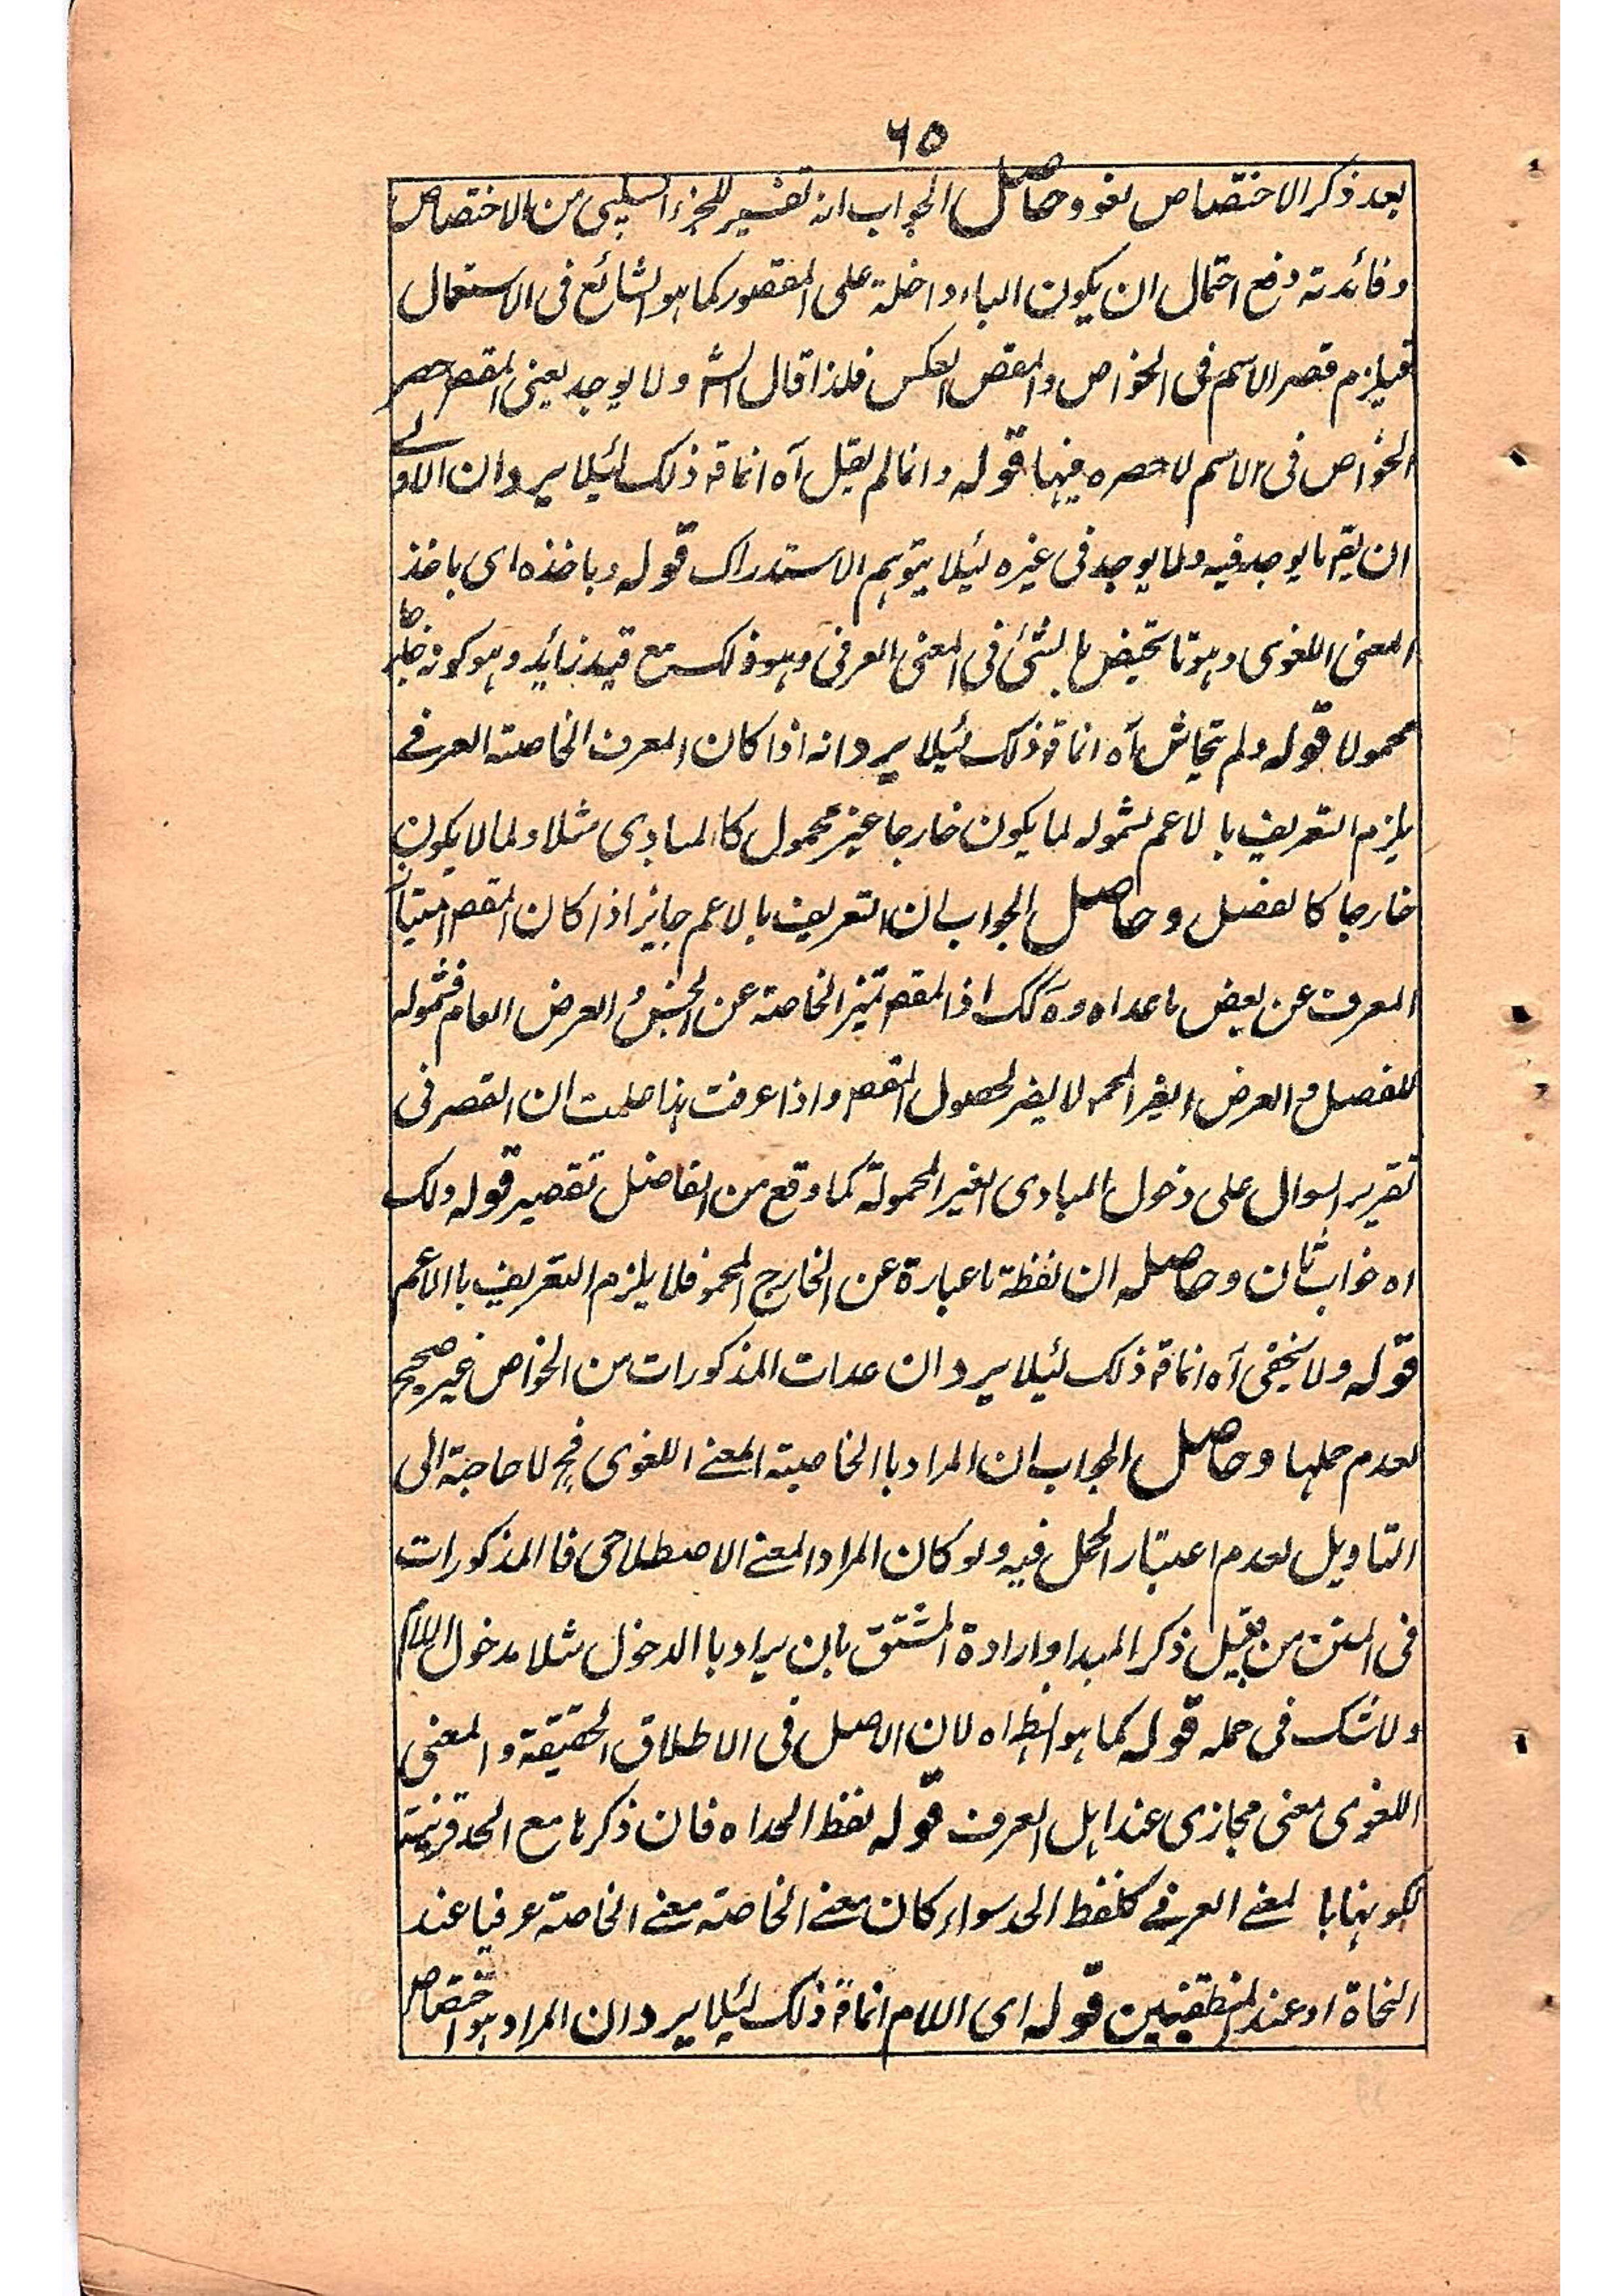 ٦٥
بعد ذكر الاختصاص لغو وحاصل الجواب انه تفسير للجزء السلبى من الاختصاص
وفائدته دفع احتمال ان يكون الباء داخلة على المقصور كما هو الشائع فى الاستعمال
فيلزم قصر الاسم فى الخواص والمقص العكس فلذا قال الشـ ولا يوجد يعنى المقصر حصر
الخواص فى الاسم لا حصره فيها قوله وانما لم يقل آه انما قـ ذلك لئيلا يرد ان الاولے
ان يقـ ما يوجد فيه ولا يوجد فى غيره لئيلا يتوهم الاستدراك قوله وباخذه اى باخذ
المعنى اللغوى وهو ما يختص بالشئ فى المعنى العرفى وهو ذلك مع قيد زائد وهو كونه خارجا
محمولا قوله ولم يتحاش آه انما قـ ذلك لئيلا يرد انه اذا كان المعرف الخاصته العرفے
يلزم التعريف بالاعم لشموله لما يكون خارجا غير محمول كالمبادى مثلا ولما لا يكون
خارجا كالفصل وحاصل الجواب ان التعريف بالاعم جايز اذا كان المقصر امتياز
المعرف عن بعض ما عداه وهٓكك اذ المقصر تميز الخاصته عن الجنس والعرض العام فشموله
للفصل والعرض الغير المحمولا لا يضر لحصول المقصر واذا عرفت هذا علمت ان القصر فى
تقرير السوال على دخول المبادى الغير المحمولة كما وقع من الفاضل تقصير قوله ولك
اه جواب ثان وحاصله ان لفظة ما عبارة عن الخارج المحمو فلا يلزم التعريف باالاعم
قوله ولا يخفى آه انما قـ ذلك لئيلا يرد ان عدات المذكورات من الخواص غير صحيح
لعدم حملها وحاصل الجواب ان المراد باالخاصيته المعنے اللغوى فح لا حاجة الى
التاويل لعدم اعتبار الحمل فيه ولو كان المراد المعنے الاصطلاحى فاالمذكورات
فى المتن من قبيل ذكر المبدا وارادة المشتق بان يراد باالدخول مثلا مدخول اللام
ولا شك فى حمله قوله كما هو الظاه لان الاصل فى الاطلاق الحقيقة والمعنى
اللغوى معنى مجازى عند اهل العرف قوله لفظ الحد اه فان ذكرها مع الحد قرينته
لكونها بالمعنے العرفے كلفظ الحد سواء كان معنے الخاصته معنے الخاصته عرفيا عند
النحاة او عند المنطقيين قوله اى اللام انما قـ ذلك لئيلا يرد ان المراد هو اختصاص